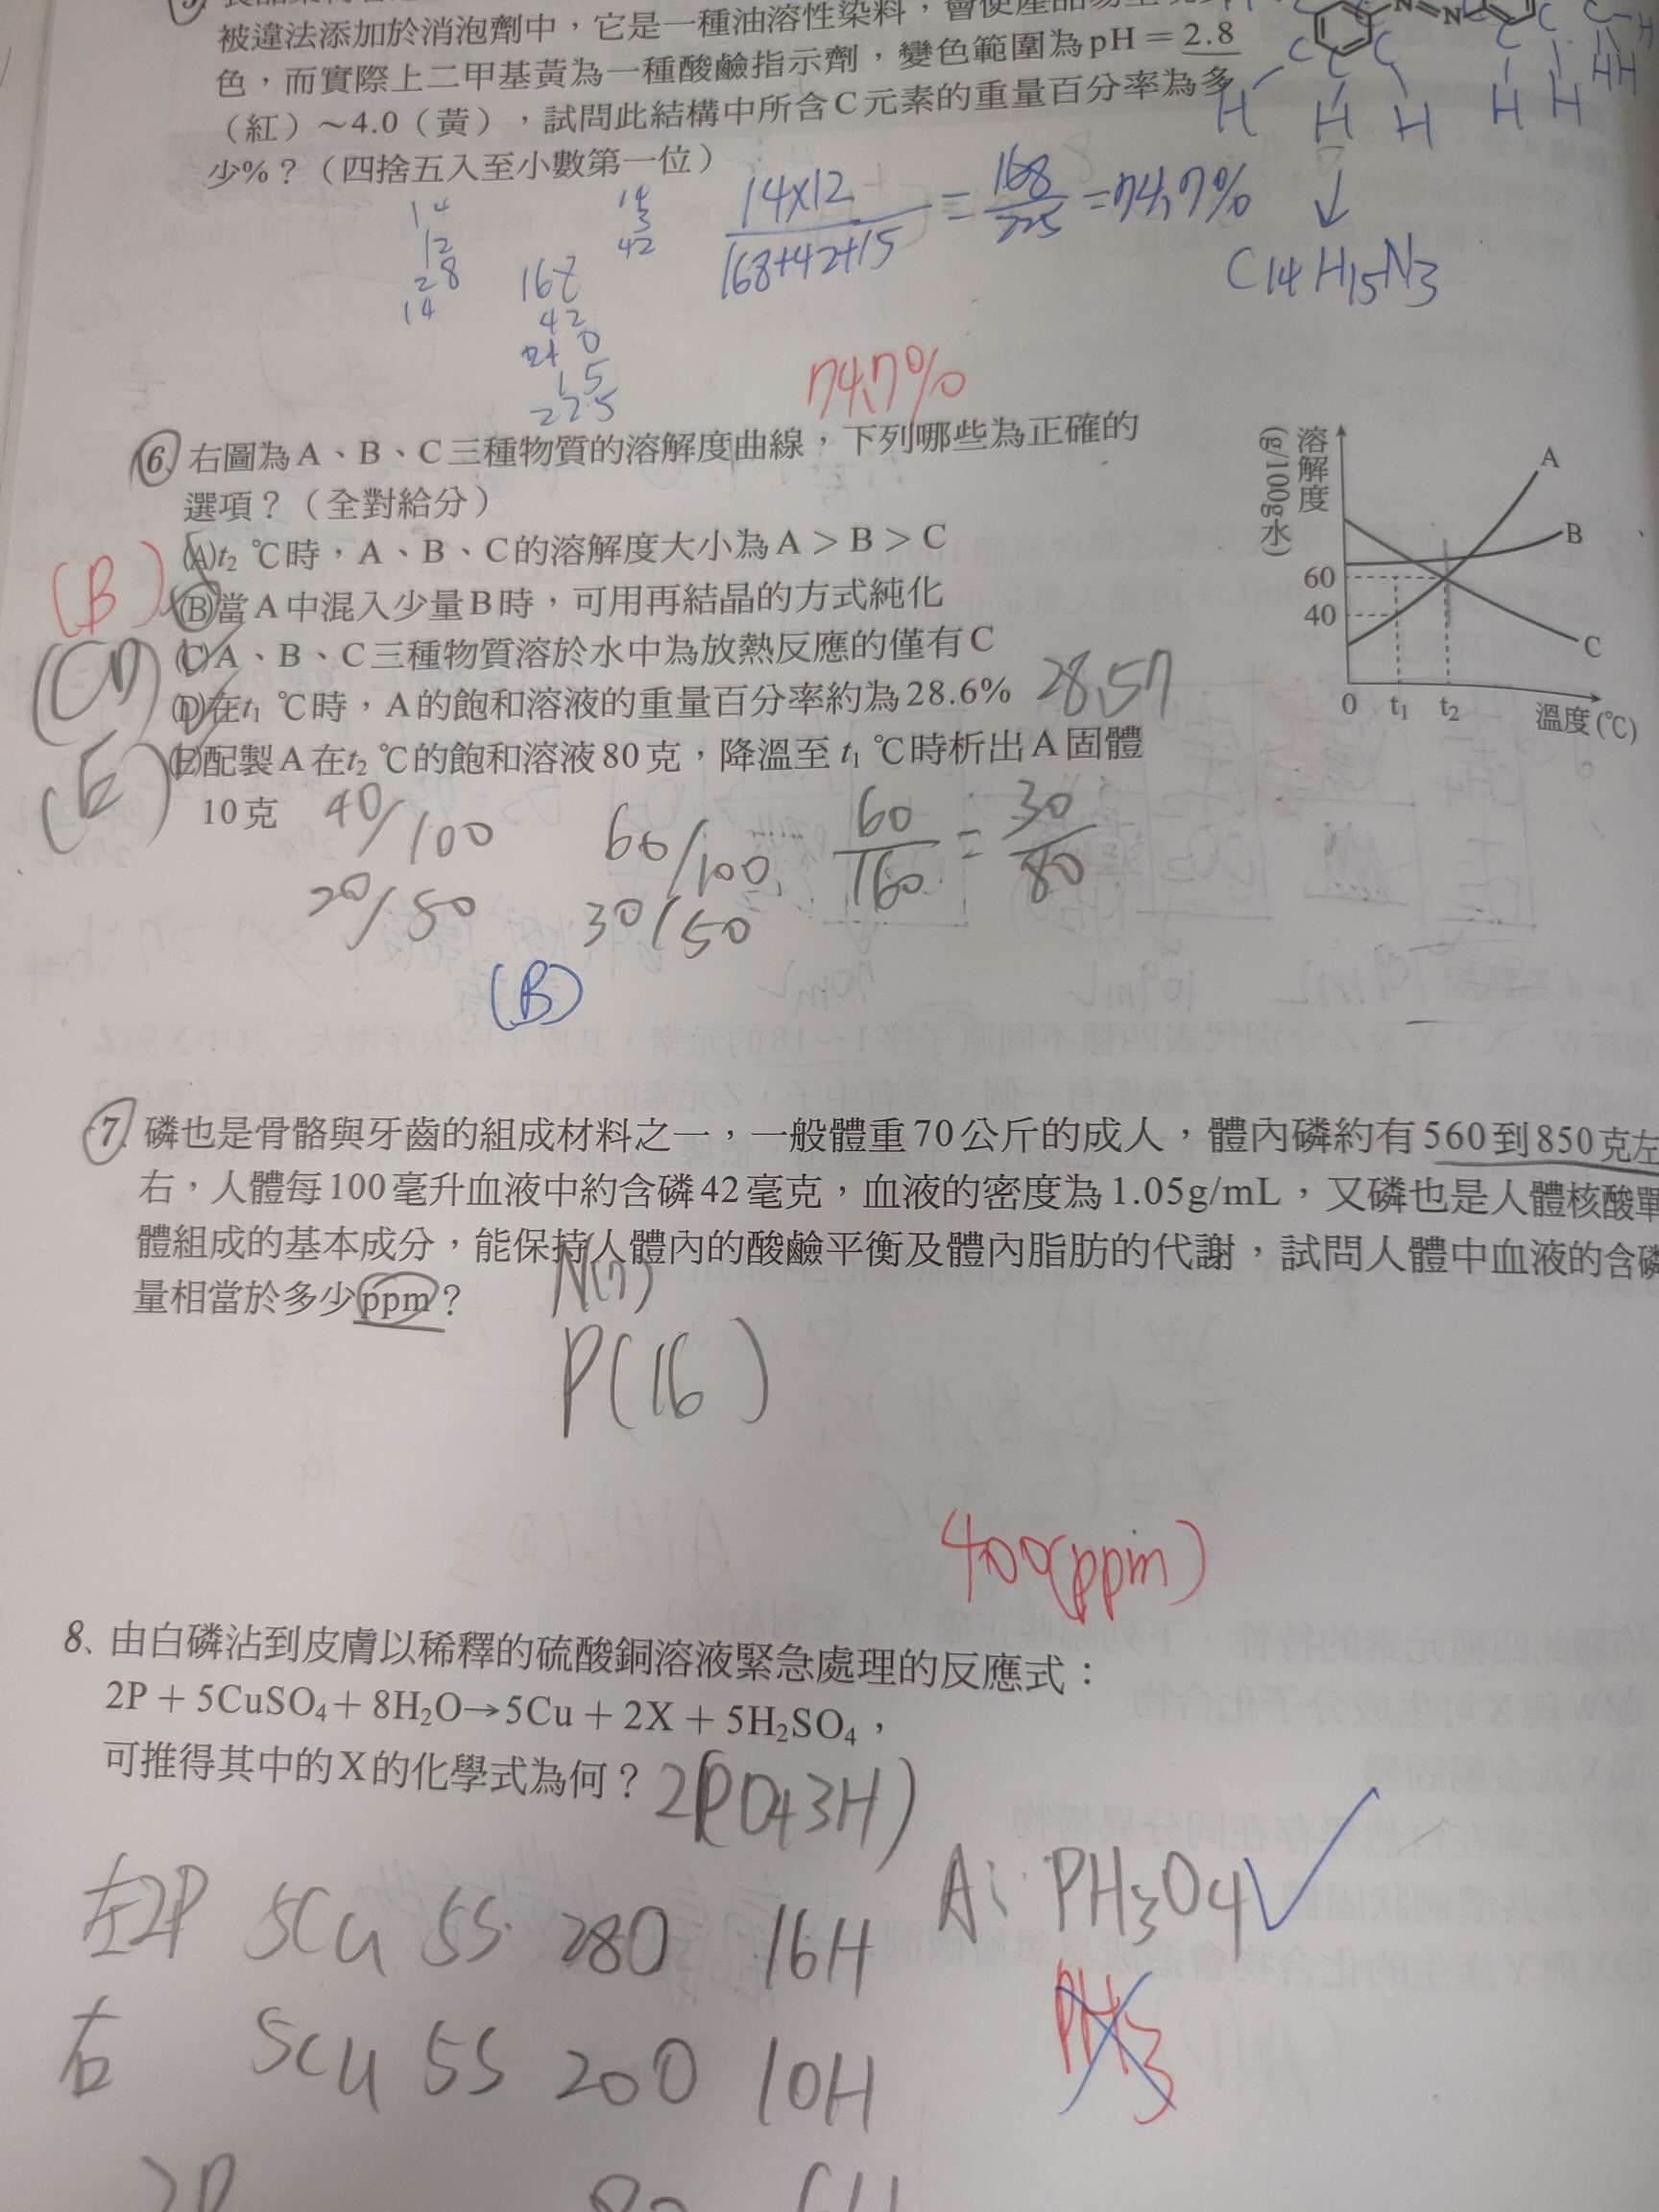 被違法添加於消泡劑中，它是一種油溶性染料，會使產品
色，而實際上二甲基黃為一種酸鹼指示劑，變色範圍為pH＝2.8
（紅）～4.0（黃），試問此結構中所含C元素的重量百分率為多
少%？（四捨五入至小數第一位）
N=N
C C C C C C
H H H H H H H H
14
12
28
14
168
42
210
15
225
14
3
42
14×12/168+42+15 = 168/225 = 74.7%
↓
C14H15N3
74.7%
6. 右圖為A、B、C三種物質的溶解度曲線，下列哪些為正確的
選項？（全對給分）
(A)t₂ ℃時，A、B、C的溶解度大小為A＞B＞C
(B)當A中混入少量B時，可用再結晶的方式純化
(C)A、B、C三種物質溶於水中為放熱反應的僅有C
(D)在t₁ ℃時，A的飽和溶液的重量百分率約為28.6% 28.57
(E)配製A在t₂ ℃的飽和溶液80克，降溫至t₁ ℃時析出A固體
10克
(B)
(CD)
(E)
溶解度
(g/100g水)
A
B
60
40
C
0 t₁ t₂ 溫度(℃)
40/100 60/100 60/160 = 30/80
20/50 30/50
(B)
7. 磷也是骨骼與牙齒的組成材料之一，一般體重70公斤的成人，體內磷約有560到850克左
右，人體每100毫升血液中約含磷42毫克，血液的密度為1.05g/mL，又磷也是人體核酸單
體組成的基本成分，能保持人體內的酸鹼平衡及體內脂肪的代謝，試問人體中血液的含磷
量相當於多少ppm？
N(7)
P(16)
400(ppm)
8、由白磷沾到皮膚以稀釋的硫酸銅溶液緊急處理的反應式：
2P＋5CuSO₄＋8H₂O→5Cu＋2X＋5H₂SO₄，
可推得其中的X的化學式為何？ 2(PO43H)
A: PH3O4✓
PH3
左2P 5Cu 5S 28O 16H
右 5Cu 5S 20O 10H
2P 8O 6H